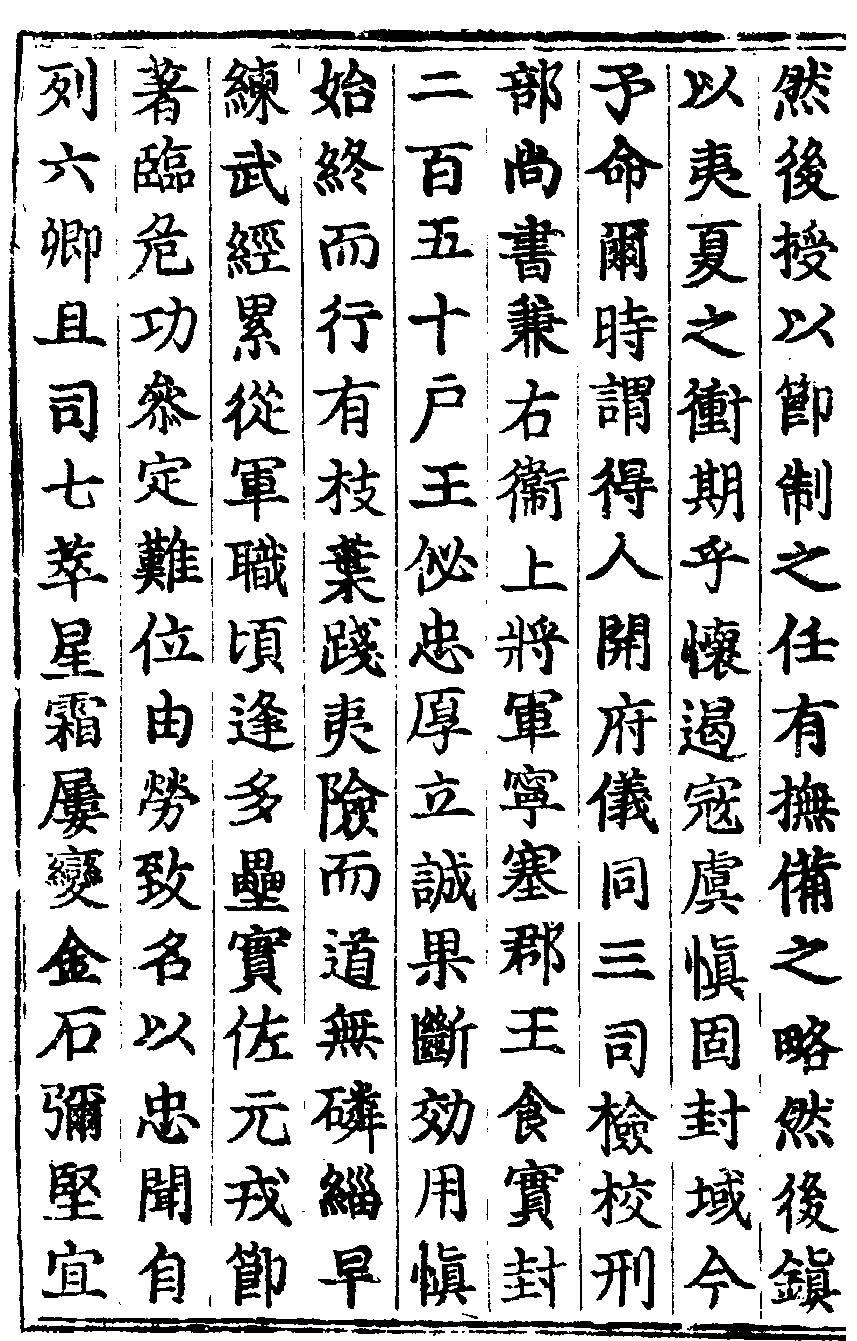 然後授以節制之任有撫備之略然後鎭
以夷夏之衝期乎懷遏寇虞愼固封域今
予命爾時謂得人開府儀同三司檢校刑
部尚書兼右衞上將軍寧塞郡王食實封
二百五十戶王佖忠厚立誠果斷効用愼
始終而行有枝葉踐夷險而道無磷緇早
練武經累從軍職頃逢多壘實佐元戎節
著臨危功叅定難位由勞致名以忠聞自
列六卿且司七萃星霜屢變金石彌堅宜